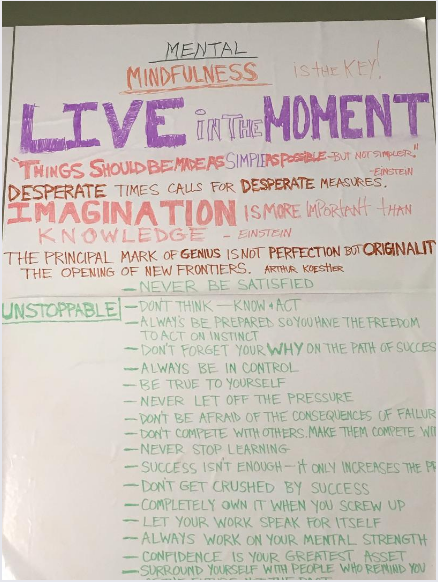 MENTAL
MINDFULNESS IS THE KEY!
LIVE IN THE MOMENT
"THINGS SHOULD BE MADE AS SIMPLE AS POSSIBLE - BUT NOT SIMPLER."
- EINSTEIN
DESPERATE TIMES CALLS FOR DESPERATE MEASURES.
IMAGINATION IS MORE IMPORTANT THAN
KNOWLEDGE - EINSTEIN
THE PRINCIPAL MARK OF GENIUS IS NOT PERFECTION BUT ORIGINALIT
THE OPENING OF NEW FRONTIERS. ARTHUR KOESTLER
- NEVER BE SATISFIED
UNSTOPPABLE - DON'T THINK - KNOW + ACT
- ALWAYS BE PREPARED SO YOU HAVE THE FREEDOM
TO ACT ON INSTINCT
- DON'T FORGET YOUR WHY ON THE PATH OF SUCCES
- ALWAYS BE IN CONTROL
- BE TRUE TO YOURSELF
- NEVER LET OFF THE PRESSURE
- DON'T BE AFRAID OF THE CONSEQUENCES OF FAILUR
- DON'T COMPETE WITH OTHERS. MAKE THEM COMPETE WI
- NEVER STOP LEARNING
- SUCCESS ISN'T ENOUGH - IT ONLY INCREASES THE PR
- DON'T GET CRUSHED BY SUCCESS
- COMPLETELY OWN IT WHEN YOU SCREW UP
- LET YOUR WORK SPEAK FOR ITSELF
- ALWAYS WORK ON YOUR MENTAL STRENGTH
- CONFIDENCE IS YOUR GREATEST ASSET
- SURROUND YOURSELF WITH PEOPLE WHO REMIND YOU